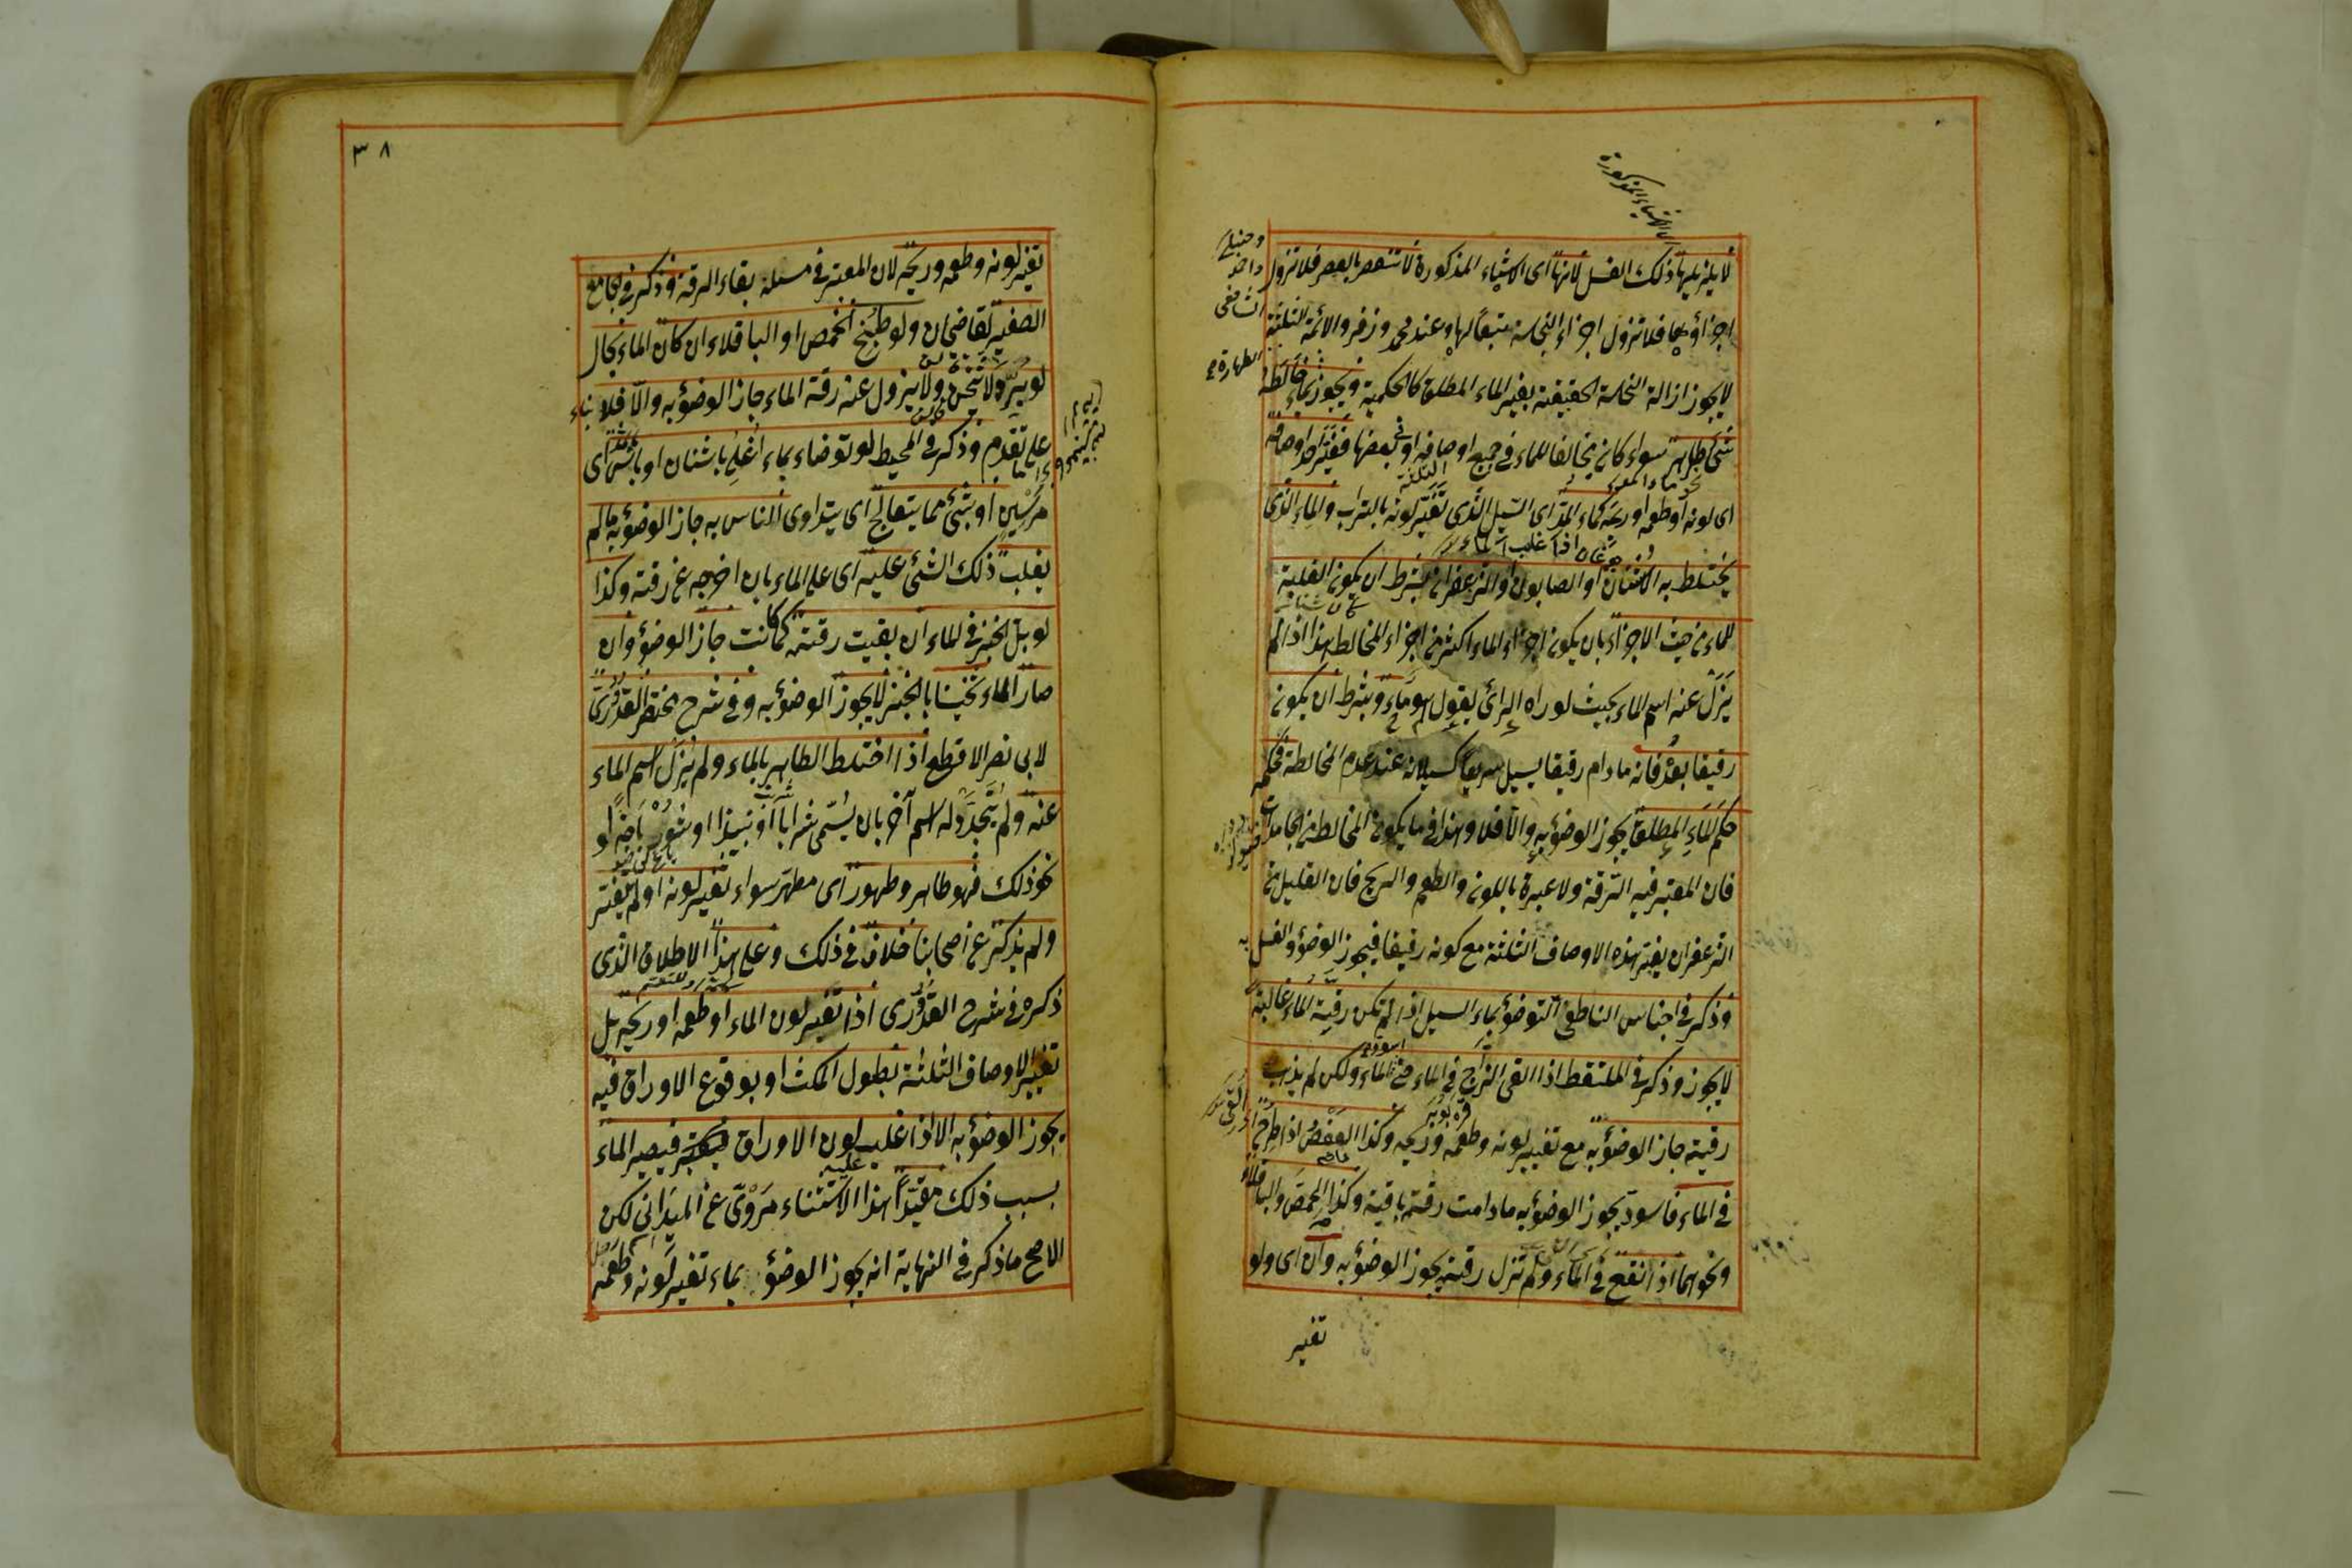 لا يزيلها ذلك الغسل لانها اى الاشياء المذكورة لا تنعصر بالعصر فلا تزول
اجزاؤها فلا تزول اجزاء النجاسة تبعا لها وعند محمد وزفر والائمة الثلثة
لا يجوز ازالة النجاسة الحقيقية بغير الماء المطلق كالحكمية ويجوز بماء خالطه
شئ طاهر سواء كان مخالفا للماء فى جميع اوصافه او فى بعضها فغير احد اوصافه
اى لونه او طعمه او ريحه كماء المد اى السيل الذى تغير لونه بالتراب والماء الذى
يختلط به الاشنان او الصابون او الزعفران بشرط ان يكون الغلبة
للماء من حيث الاجزاء بان يكون اجزاء الماء اكثر من اجزاء المخالط هذا اذا لم
يزل عنه اسم الماء بحيث لو راه الرائى يقول هو ماء وبشرط ان يكون
رقيقا بعد فانه ما دام رقيقا يسيل سريعا كسيلانه عند عدم المخالطة فحكمه
حكم الماء المطلق يجوز الوضوء به والا فلا وهذا فى ما يكون المخالط من الجامدات
فان المعتبر فيه الرقة ولا عبرة باللون والطعم والريح فان القليل من
الزعفران يغير هذه الاوصاف الثلثة مع كونه رقيقا فيجوز الوضوء والغسل به
وذكر فى اجناس الناطفى التوضؤ بماء السيل اذا لم تكن رقية الماء غالبة
لا يجوز وذكر فى الملتقط اذا القى الزاج فى الماء حتى اسود الماء ولكن لم يذهب
رقيته جاز الوضوء به مع تغيير لونه وطعمه وريحه وكذا العفص اذا طرح
فى الماء فاسود يجوز الوضوء به ما دامت رقته باقية وكذا الحمص والباقلاء
ونحوهما اذا نقع فى الماء ولم تزل رقيته يجوز الوضوء به وان اى ولو
تغير
٣٨
تغير لونه وطعمه وريحه لان المعتبر فى مسئلة بقاء الرقة وذكر فى الجامع
الصغير لقاضيخان ولو طبخ الحمص او الباقلاء ان كان الماء بحال
لو برد ولا ثخن ولا يزول عنه رقة الماء جاز الوضوء به والا فلا بناء
على تقدم وذكر فى المحيط لو توضاء بماء اغلى باشنان او باس اى
مرسين او بشئ مما يتعالج اى يتداوى الناس به جاز الوضوء به ما لم
يغلب ذلك الشئ عليه اى على الماء بان اخرجه عن رقته وكذا
لو بل الخبز فى الماء ان بقيت رقته كما كانت جاز الوضوء وان
صار الماء ثخينا بالخبز لا يجوز الوضوء به وفى شرح مختصر القدورى
لابى نصر الاقطع اذا اختلط الطاهر بالماء ولم يزل اسم الماء
عنه ولم يتجدد له اسم آخر بان يسمى شرابا او نبيذا او شورباجا او
نحو ذلك فهو طاهر وطهور اى مطهر سواء تغير لونه او لم يتغير
ولم يذكر عن اصحابنا خلاف فى ذلك وعلى هذا الاطلاق الذى
ذكره فى شرح القدورى اذا تغير لون الماء او طعمه او ريحه بل
تغيير الاوصاف الثلثة بطول المكث او بوقوع الاوراق فيه
يجوز الوضوء به الا اذا غلب لون الاوراق فيصير الماء
بسبب ذلك مقيدا هذا الاستثناء مروى عن الميدانى لكن
الاصح ما ذكر فى النهاية انه يجوز الوضوء بماء تغير لونه وطعمه